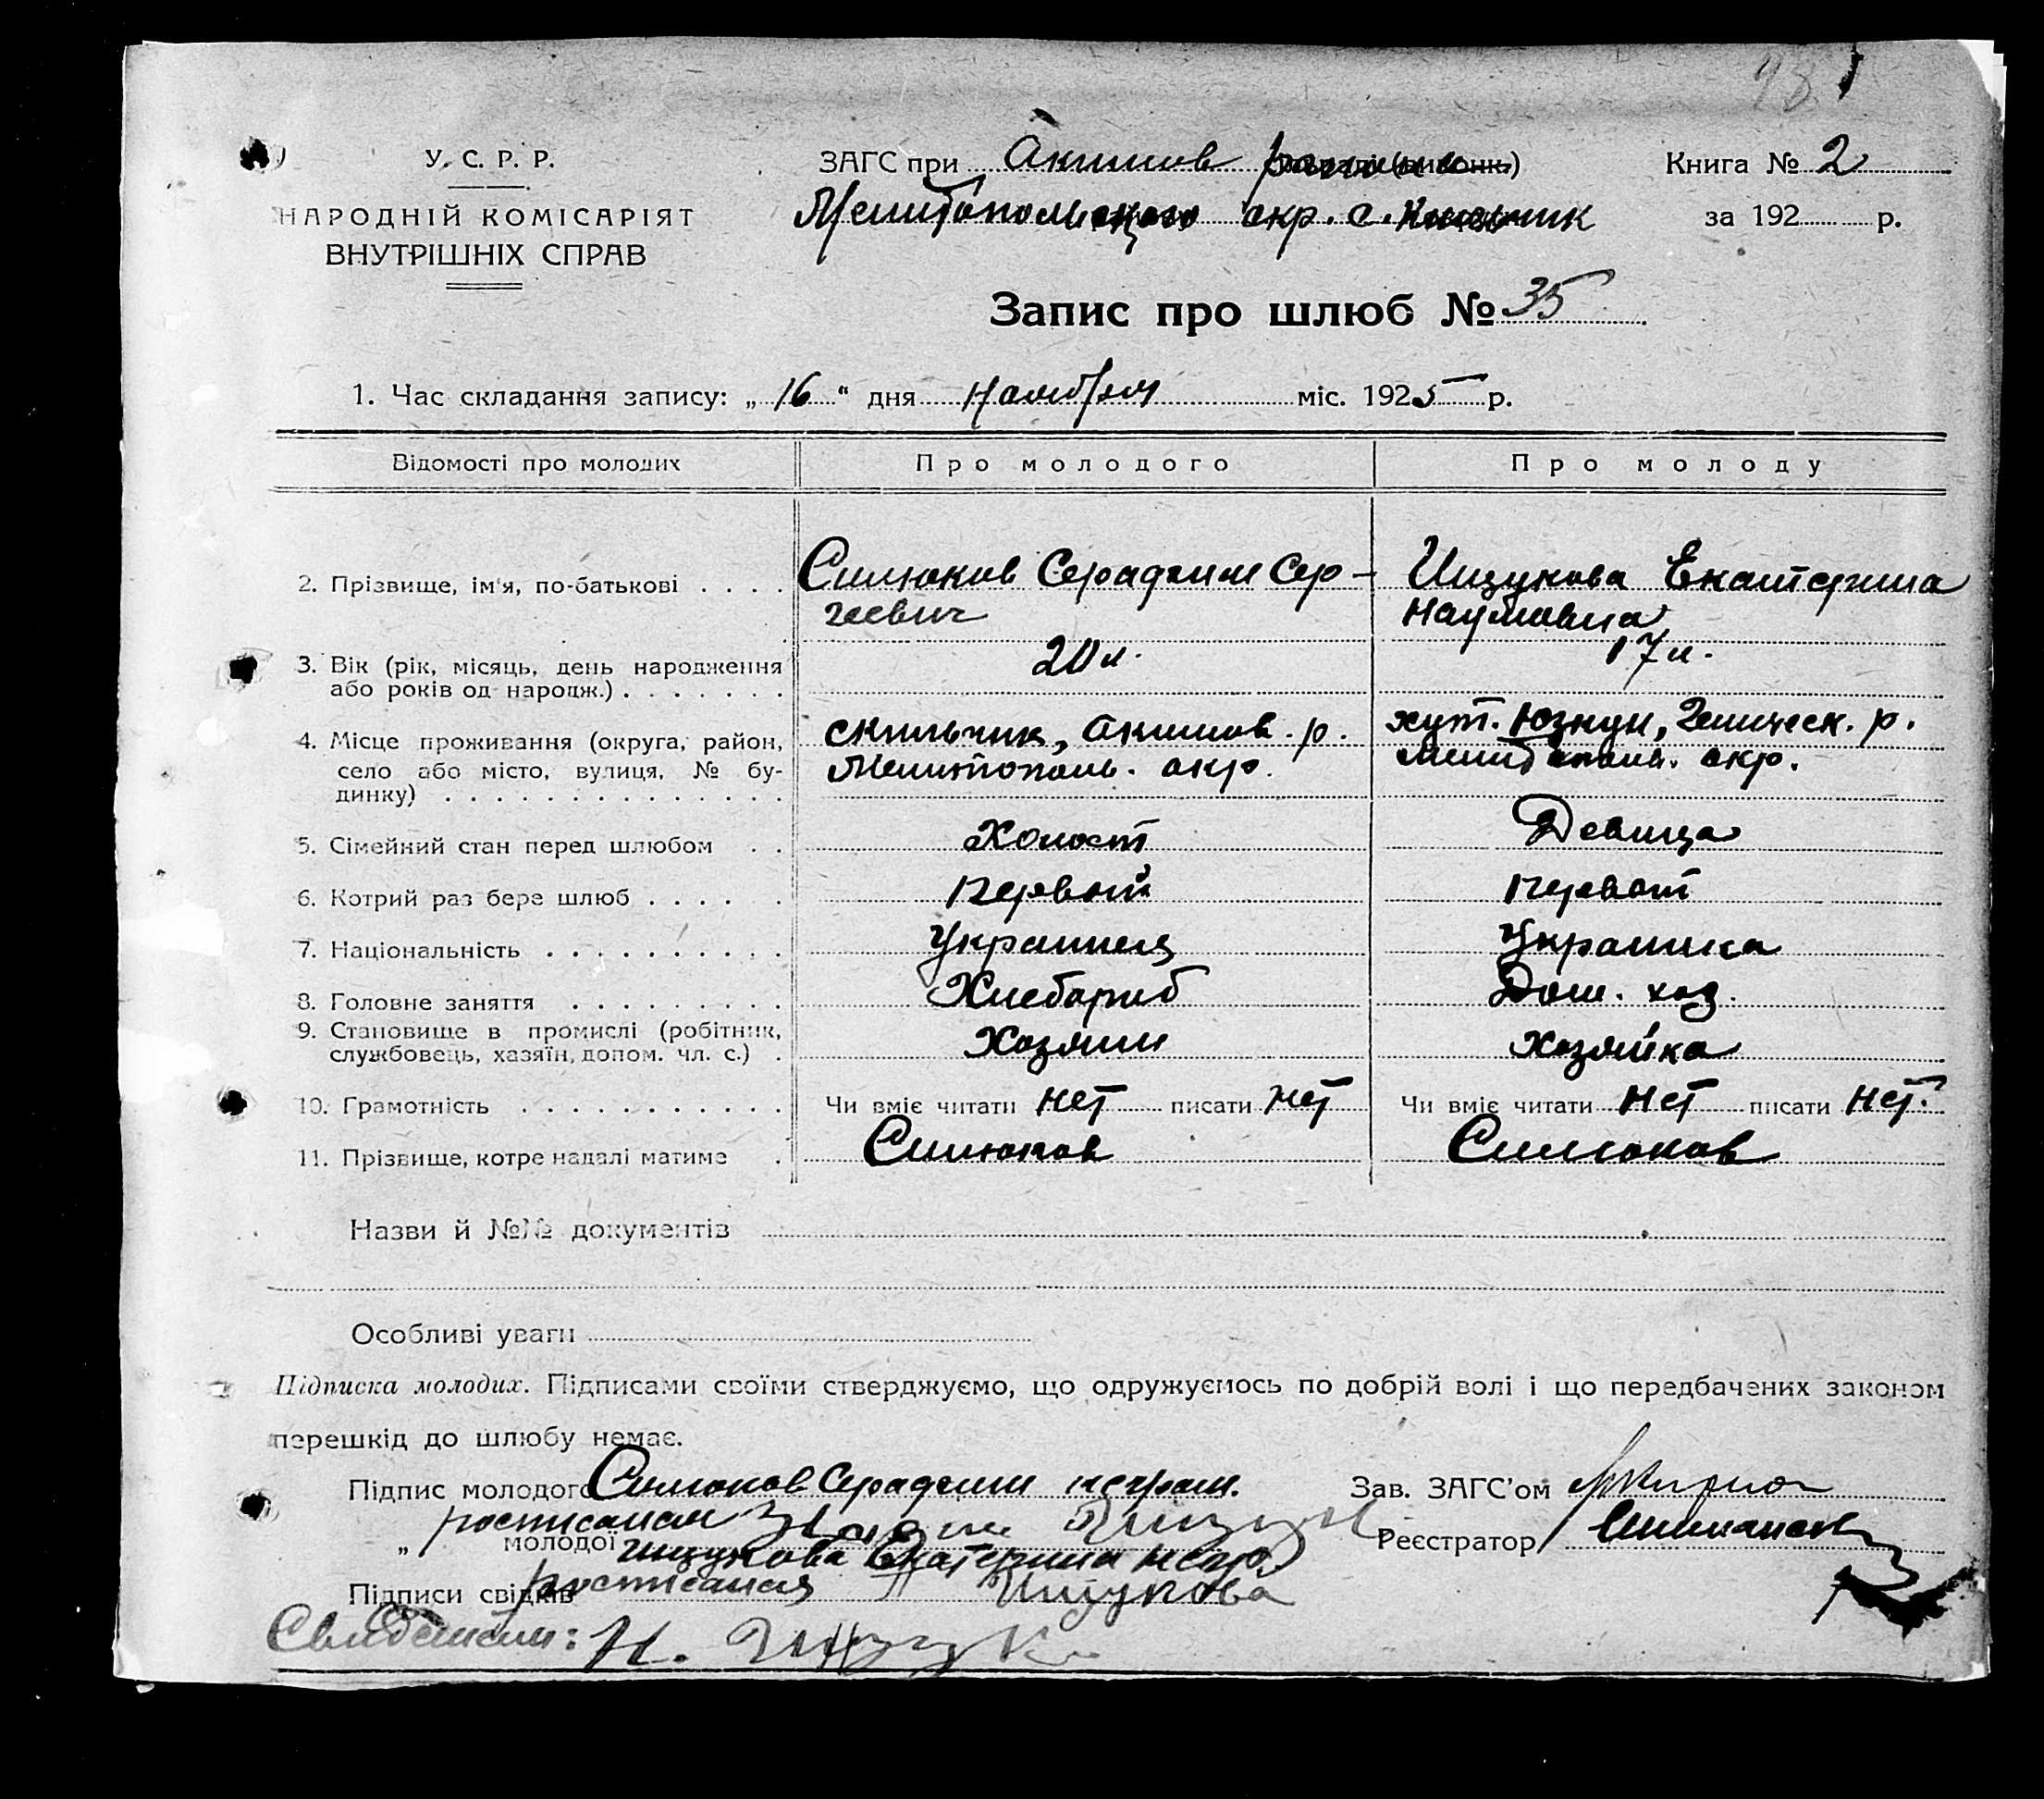 981
У. С. Р. Р.
НАРОДНІЙ КОМІСАРІЯТ
ВНУТРІШНІХ СПРАВ
ЗАГС при Акимов район
Мелитопольского окр. с.
Книга № 2
за 192 р.
Запис про шлюб № 35
1. Час складання запису: „ 16 “ дня Ноября міс. 1925 р.
Відомості про молодих
Про молодого
Про молоду
2. Прізвище, ім'я, по-батькові . . . .
Силюков Серафим Сер-
геевич
Ищукова Екатерина
Наумовна
3. Вік (рік, місяць, день народження
або років од народж.) . . . . . . .
20 л.
17 л.
4. Місце проживання (округа, район,
село або місто, вулиця, № бу-
динку) . . . . . . . . . . . . . .
Акимов. р.
Мелитополь. окр.
хут. Юзкуи, Геническ. р.
Мелитополь. окр.
5. Сімейний стан перед шлюбом . .
Холост
Девица
6. Котрий раз бере шлюб . . . . .
Первый
Первый
7. Національність . . . . . . . . . .
Украинец
Украинка
8. Головне заняття . . . . . . . . .
Хлебороб
Дом. хоз.
9. Становище в промислі (робітник,
службовець, хазяїн, допом. чл. с.) .
Хозяин
Хозяйка
10. Грамотність . . . . . . . . . . .
Чи вміє читати нет писати нет
Чи вміє читати нет писати нет.
11. Прізвище, котре надалі матиме .
Силюков
Силюков
Назви й №№ документів
Особливі уваги
Підписка молодих. Підписами своїми стверджуємо, що одружуємось по добрій волі і що передбачених законом
перешкід до шлюбу немає.
Підпис молодого Силюков Серафим неграм.
Зав. ЗАГС’ом
росписался
„ молодої Ищукова Екатерина негр.
Реєстратор
Підписи свідків росписался Ищукова
Свидетели: Н.